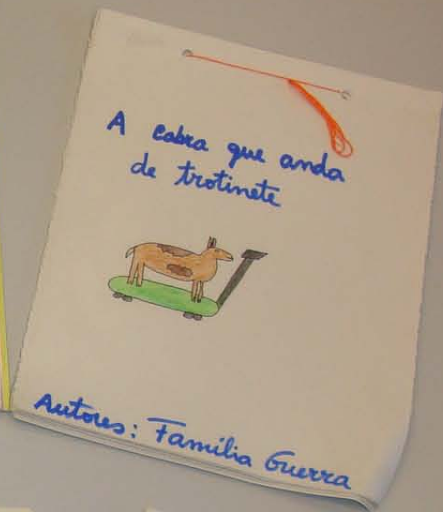 A cabra que anda
de trotinete
Autores: Família Guerra